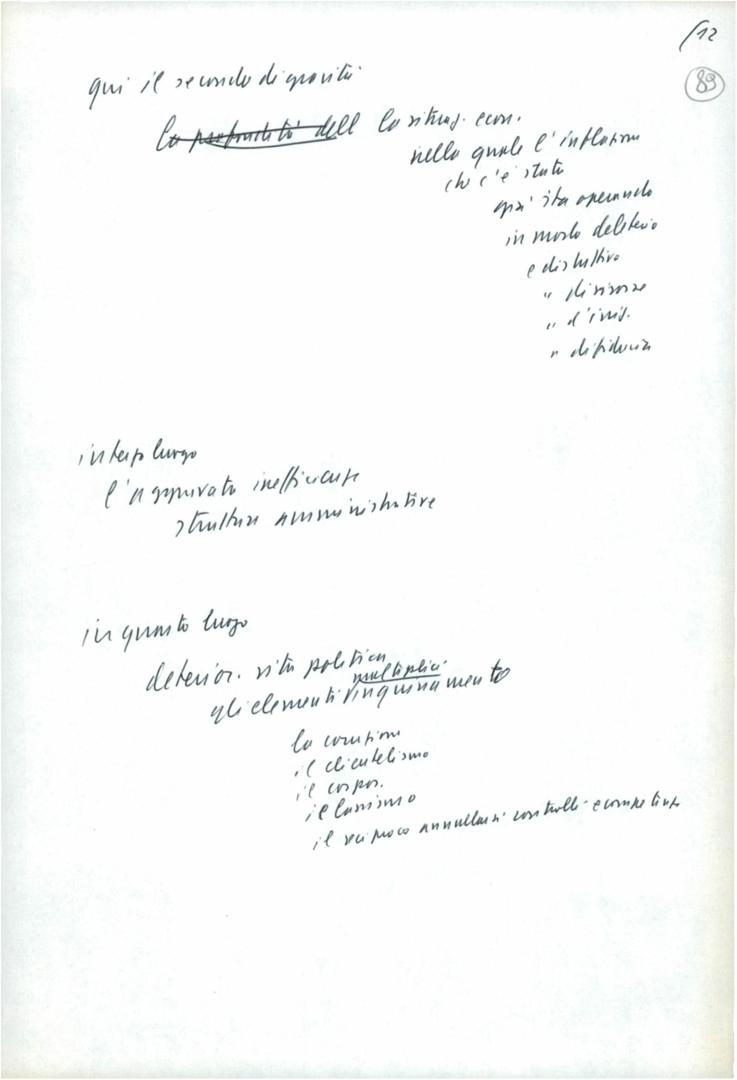 /12
89
qui il secondo di gravità
la profondità dell la situaz. econ.
nella quale l'inflazione
che c'è stata
già sta operando
in modo deleterio
e distruttivo
" di risorse
" d'iniz.
" di fiducia
in terzo luogo
l'apparato inefficiente
struttura amministrativa
in quarto luogo
deterior. vita politica
multiplici
gli elementi inquinamento
la corruzione
il clientelismo
il corpor.
il lassismo
il reciproco annullarsi controlli e competenze